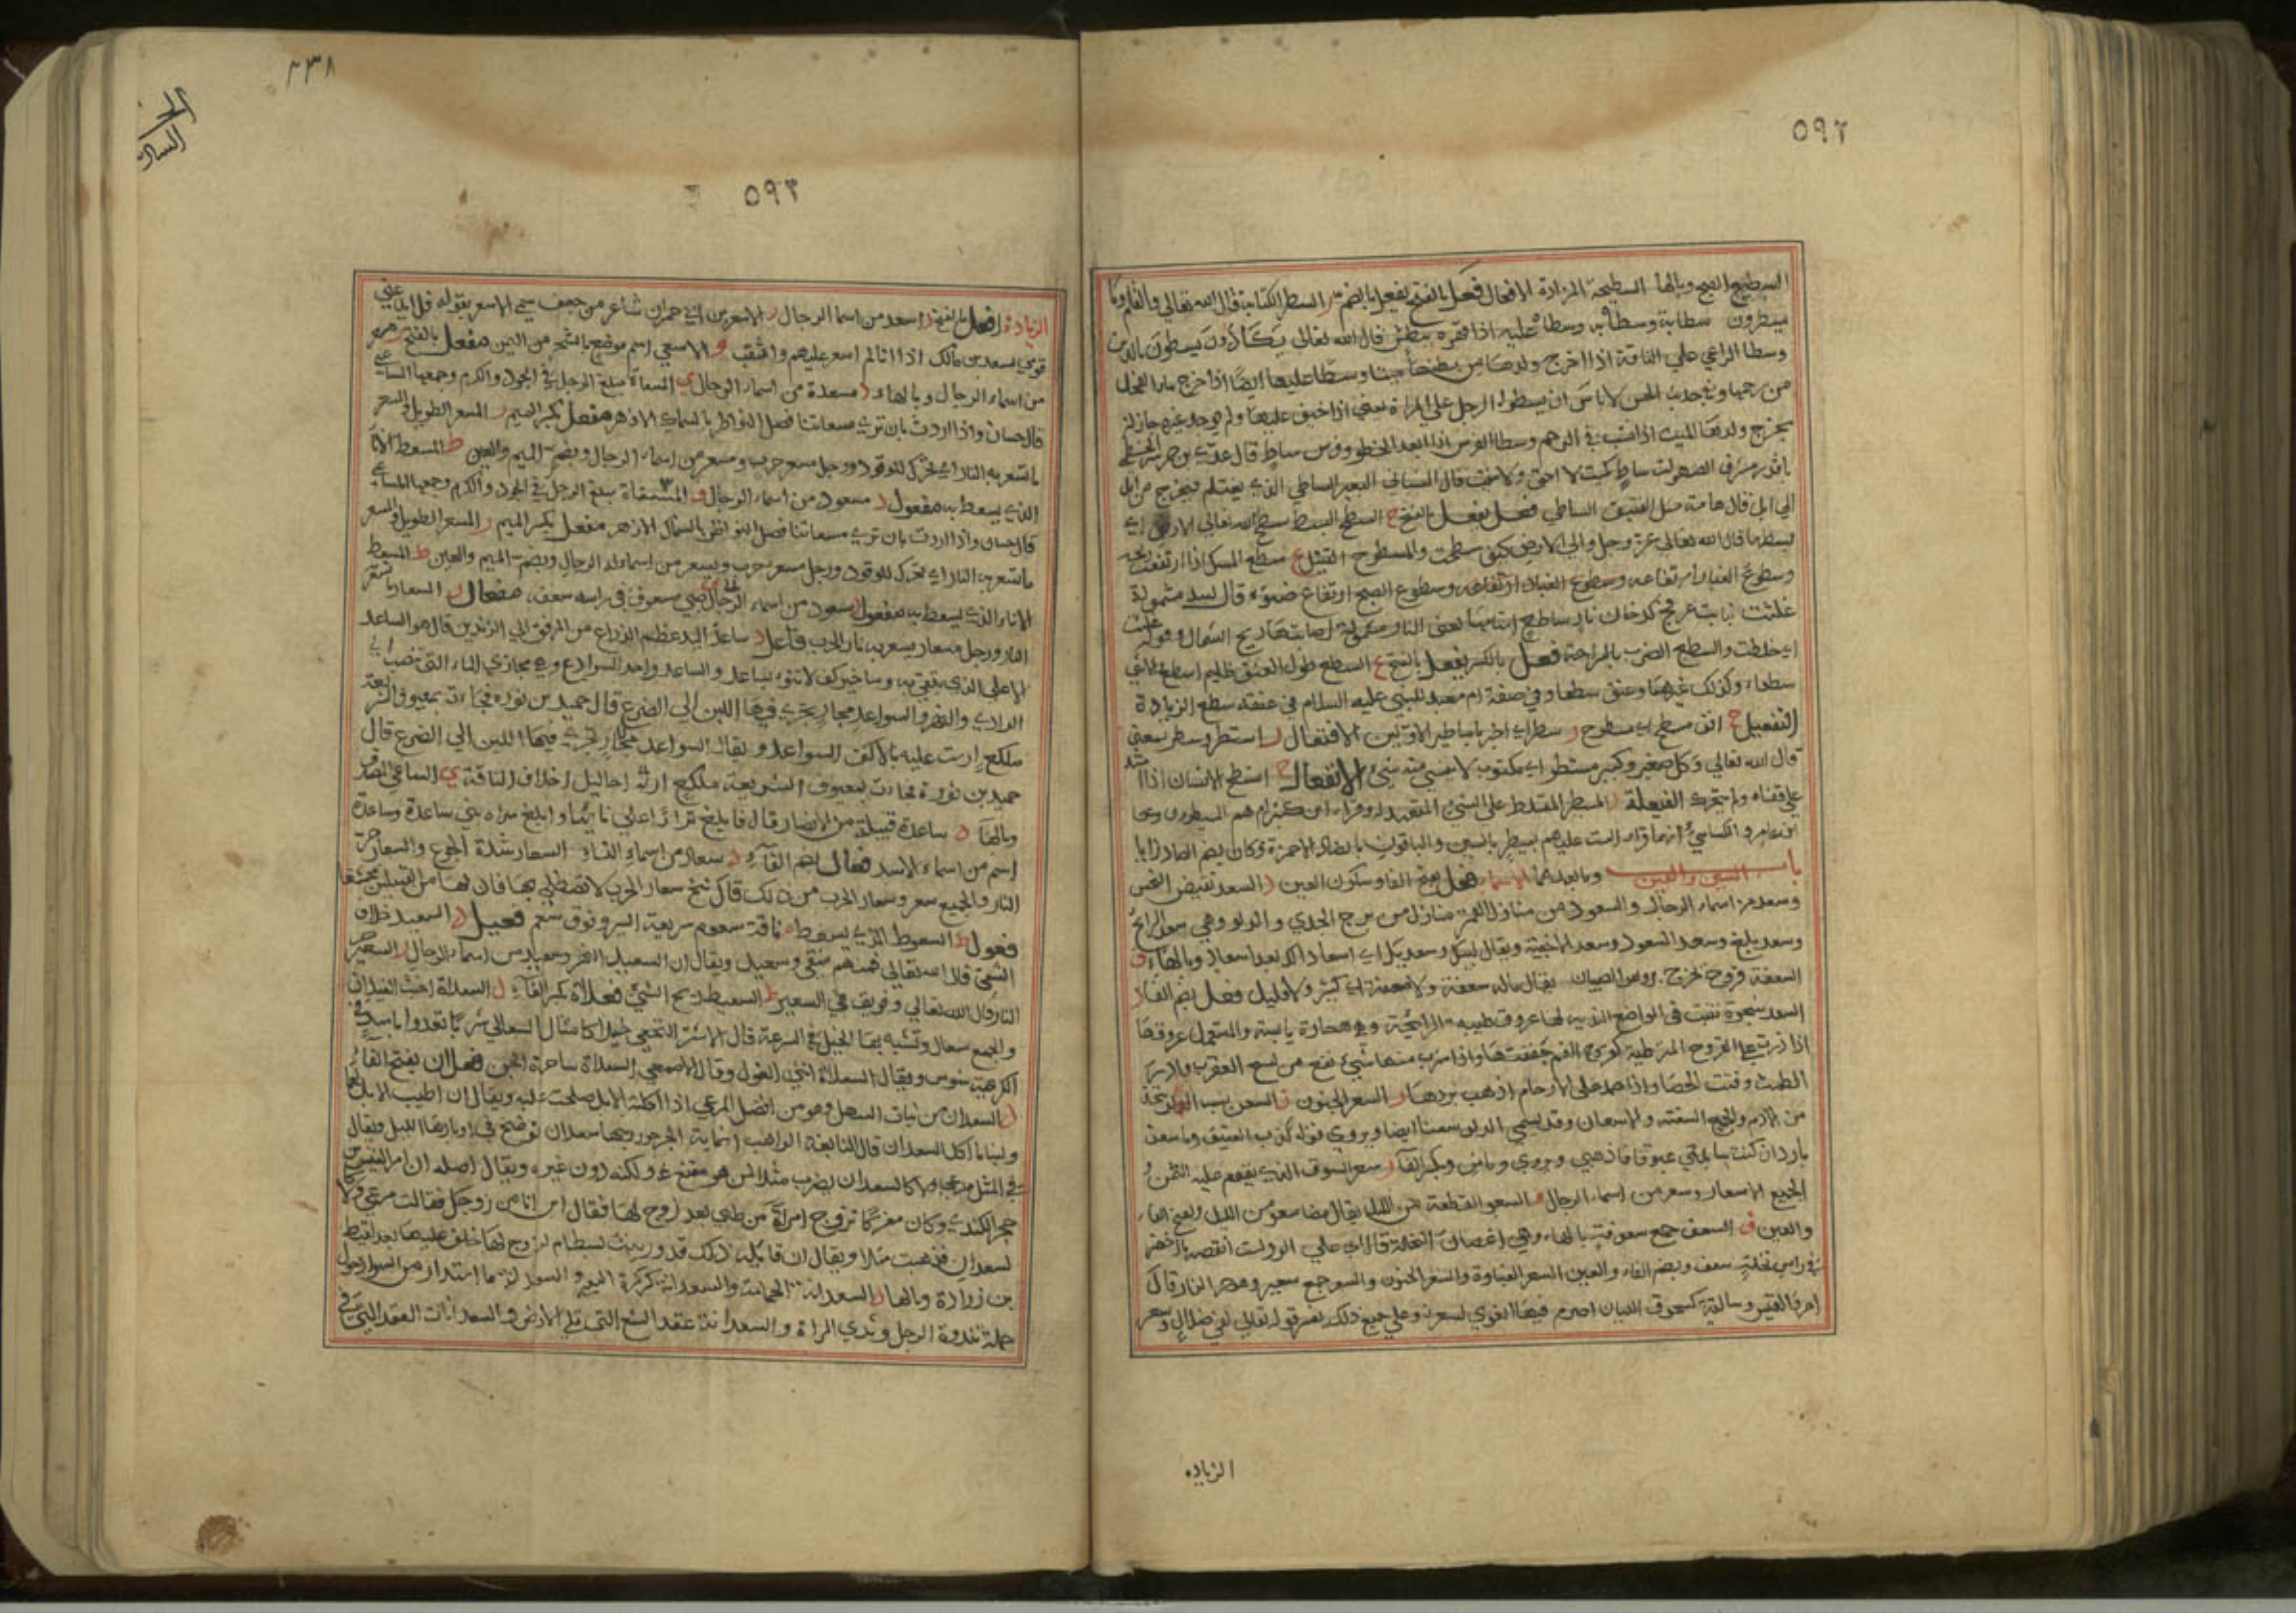 ٥٩٢
السطيح القبح وبالها السطيحة المزادة الافعال فعل بالفتح يفعل بالضم ر السطر الكتابة قال الله تعالى والقلم وما
يسطرون سطابة وسطا به وسطا عليه اذا قهره ببطش قال الله تعالى يكادون يسطون بالذين
وسطا الراعي على الناقة اذا اخرج ولدها من بطنها ميتا وسطا عليها ايضا اذا اخرج ماء الفحل
من رحمها وفي حديث الحسن لا باس ان يسطو الرجل على المراة يعني اذا خيف عليها ولم يوجد
يخرج ولدها الميت اذا نشب في الرحم وسطا الفرس اذا ابعد الخطو وفرس ساط قال عدي بن
الصهوات ساط كميت لا احق ولا شئيت قال الشيباني البعير الساطي الذي يغتلم فيخرج من ابل
الى ابل قال هامته مثل الفنيق الساطي فعل يفعل بالفتح ح السطح البسط سطح الله تعالى الارض اي
بسطها قال الله تعالى عز وجل والى الارض كيف سطحت والمسطوح القتيل ع سطع المسك اذا ارتفعت
وسطوع الغبار ارتفاعه وسطوع الغبار ارتفاعه وسطوع الصبح ارتفاع ضوئه قال لبيد مشمولة
غلثت بنابت عرفج كدخان نار ساطع اسنامها يعني النار مشمولة اصابتها ريح الشمال وقوله غلثت
اي خلطت والسطع الضرب بالراحة فعل بالكسر يفعل بالفتح ع السطع طول العنق ظليم اسطع
سطعاء وكذلك غيرهما وعنق سطعا وفي صفة ام معبد للنبي عليه السلام في عنقه سطع الزيادة
التفعيل ح انف مسطح اي مسطوح ر سطر اي اخبر باساطير الاولين الافتعال ر استطر وسطر بمعنى
قال الله تعالى وكل صغير وكبير مستطر اي مكتوب لا ينسى منه شيء الانفعال ح انسطح الانسان اذا امتد
على قفاه ولم يتحرك الفيعلة ر المسيطر المتسلط على الشيء المتعهد له وقراء ابن كثير ام هم المسيطرون
ابن عامر والكسائي انهما قرءا لست عليهم بمسيطر بالسين والباقون بالصاد الا حمزة وكان يضم الصاد زايا
باب السين والعين وما بعدهما الاسماء فعل بفتح الفا وسكون العين د السعد نقيض النحس
وسعد من اسماء الرجال والسعود من منازل القمر منازل من برج الجدي والدلو وهي سعد الذابح
وسعد بلع وسعد السعود وسعد الاخبية ويقال لبيك وسعديك اي اسعادا لك بعد اسعاد وبالهاء ف
السعفة قروح تخرج بروس الصبيان يقال ماله سعنة ولا معنة اي كثير ولا قليل فعل بضم الفا د
السعد شجرة تنبت في المواضع الندية لها عروق طيبة الرائحة وهي حارة يابسة والمستعمل عروقها
اذا ذرت على القروح المترطبة كقروح الفم جففتها واذا شرب منها شيء نفع من لسع العقرب وادر
الطمث وفتت الحصا واذا حمد على الارحام اذهب بردها ر السعر الجنون ن السعن شبه الدلو يتخذ
من الادم والجميع السعنة والاسعان وقد يسمى الدلو سعنا ايضا ويروى قوله كذب العتيق وما سعن
بارد ان كنت سائلتي غبوقا فاذهبي ويروى وماشن وبكسر الفا ر سعر السوق الذي يقوم عليه الثمن و
الجميع الاسعار وسعر من اسماء الرجال و السعو القطعة من الليل يقال مضا سعو من الليل وبفتح الفاء
والعين ف السعف جمع سعفة بالهاء وهي اغصان النخلة قال اني على الورلت انقصه بالاخضر
في راس نخلة سعف وبضم الفاء والعين السعر العناوة والسعر الجنون والسعر جمع سعير وهو حر النار قال
امرؤ القيس وسالفة كسحوق الليان اضرم فيها الغوي السعر وعلى جميع ذلك يفسر قوله تعالى لفي ضلال وسعر
الزياده
٢٣٨
٥٩٣
الزيادة افعل بالفتح د اسعد من اسما الرجال ر الاسعر بن ابي حمران شاعر من جعف سمي الاسعر بقوله
قومي لسعد بن مالك اذا انا لم اسعر عليهم واثقب و الاسعى اسم موضع بالشحر من اليمن مفعل بالفتح ر
من اسماء الرجال وبالهاء د مسعدة من اسماء الرجال ي المسعاة مبلغ الرجل في الجود والكرم وجمعها المساعي
قال حسان واذا اردت بان ترى مسعاتنا فصل النواظر بالسماك الازهر مفعل بكسر الميم ر المسعر الطويل والمسعر
ما تسعر به النار اي تحرك للوقود ورجل مسعر حرب ومسعر من اسماء الرجال وبضم الميم والعين ط المسعط الانا
الذي يسعط به مفعول د مسعود من اسماء الرجال ف المسعاة مبلغ الرجل في الجود والكرم وجمعها المساعي
قال حسان واذا اردت بان ترى مسعاتنا فصل النواظر بالسماك الازهر مفعل بكسر الميم ر المسعر الطويل والمسعر
ما تسعر به النار اي تحرك للوقود ورجل مسعر حرب ومسعر من اسماء الرجال وبضم الميم والعين ط المسعط
الاناء الذي يسعط به مفعول مسعود من اسماء الرجال صبي مسعوف في راسه سعف مفعال ر المسعار ما تسعر
النار ورجل مسعار يسعر به نار الحرب فاعل د ساعد اليد عظم الذراع من المرفق الى الزندين قال هو الساعد
الاعلى الذي يتقى به وما خير كف لا تنوء بساعد والساعد واحد السواعد وهي مجاري الماء التي تنصب الى
الوادي والنهر والسواعد مجار يجري فيها اللبن الى الضرع قال حميد بن ثور فجاءت بمعيوف الشريعة
مكلع ارست عليه بالاكف السواعد ويقال السواعد مجار تجري فيها اللبن الى الضرع قال
حميد بن ثور فجاءت بمعيوف الشريعة مكلع احاليل اخلاف الناقة ي الساعي المصدق
وبالهاء د ساعدة قبيلة من الانصار قال فابلغ وابلغ سراه بني ساعدة وساعدة
اسم من اسماء الاسد فعال بضم الفآء د سعاد من اسماء النساء السعار شدة الجوع والسعار حر
النار والجميع سعر وسعار الحرب من ذلك قال شخ سعار الحرب لا تصطلي بها فان لها من القبيلين محتشفا
فعول ط السعوط الذي يسعط م ناقة سعوم سريعة السير ونوق سعم فعيل د السعيد خلاف
الشقي قال الله تعالى فمنهم شقي وسعيد ويقال ان السعيد النهر وسعيد من اسماء الرجال ر السعير
النار قال الله تعالى وفريق في السعير ط السعيط ريح الشيء فعلاة بكسر الفآء ل السعلاة اخبث الغيلان
والجمع سعال وتشبه بها الخيل في السرعة قال الاشتر النخعي خيلا كامثال السعالي شزبا تعدوا باسد في
الكريهة شوس ويقال السعلاة انثى الغول وقال الاصمعي السعلاة ساحرة الجن فعلان بفتح الفاء
د السعدان من نبات السهل وهو من افضل المرعى اذا اكلته الابل صلحت عليه ويقال ان اطيب الابل
ولبنا ما اكل السعدان قال النابغة الواهب الماية الجرجور زينها سعدان توضح في اوبارها اللبد ويقال
في المثل مرعى ولا كالسعدان يضرب مثلا لمن هو مقنع ولكنه دون غيره ويقال اصله ان امرا القيس بن
حجر الكندي وكان مفركا تزوج امراة من طي بعد زوج لها فقال اين انا من زوجك فقالت مرعى ولا
كسعدان فذهبت مثلا ويقال ان قايلة ذلك قدور بنت بسطام لزوج لها خلف عليها بعد لقيط
بن زرارة وبالها ر السعدانة الحمامة والسعدانة كركرة البعير والسعدانة ما استدار من السواد حول
حلمة ثندوة الرجل وثدي المراة والسعدانة عقد الشسع التي تلي الارض و السعدانات العقد التي في